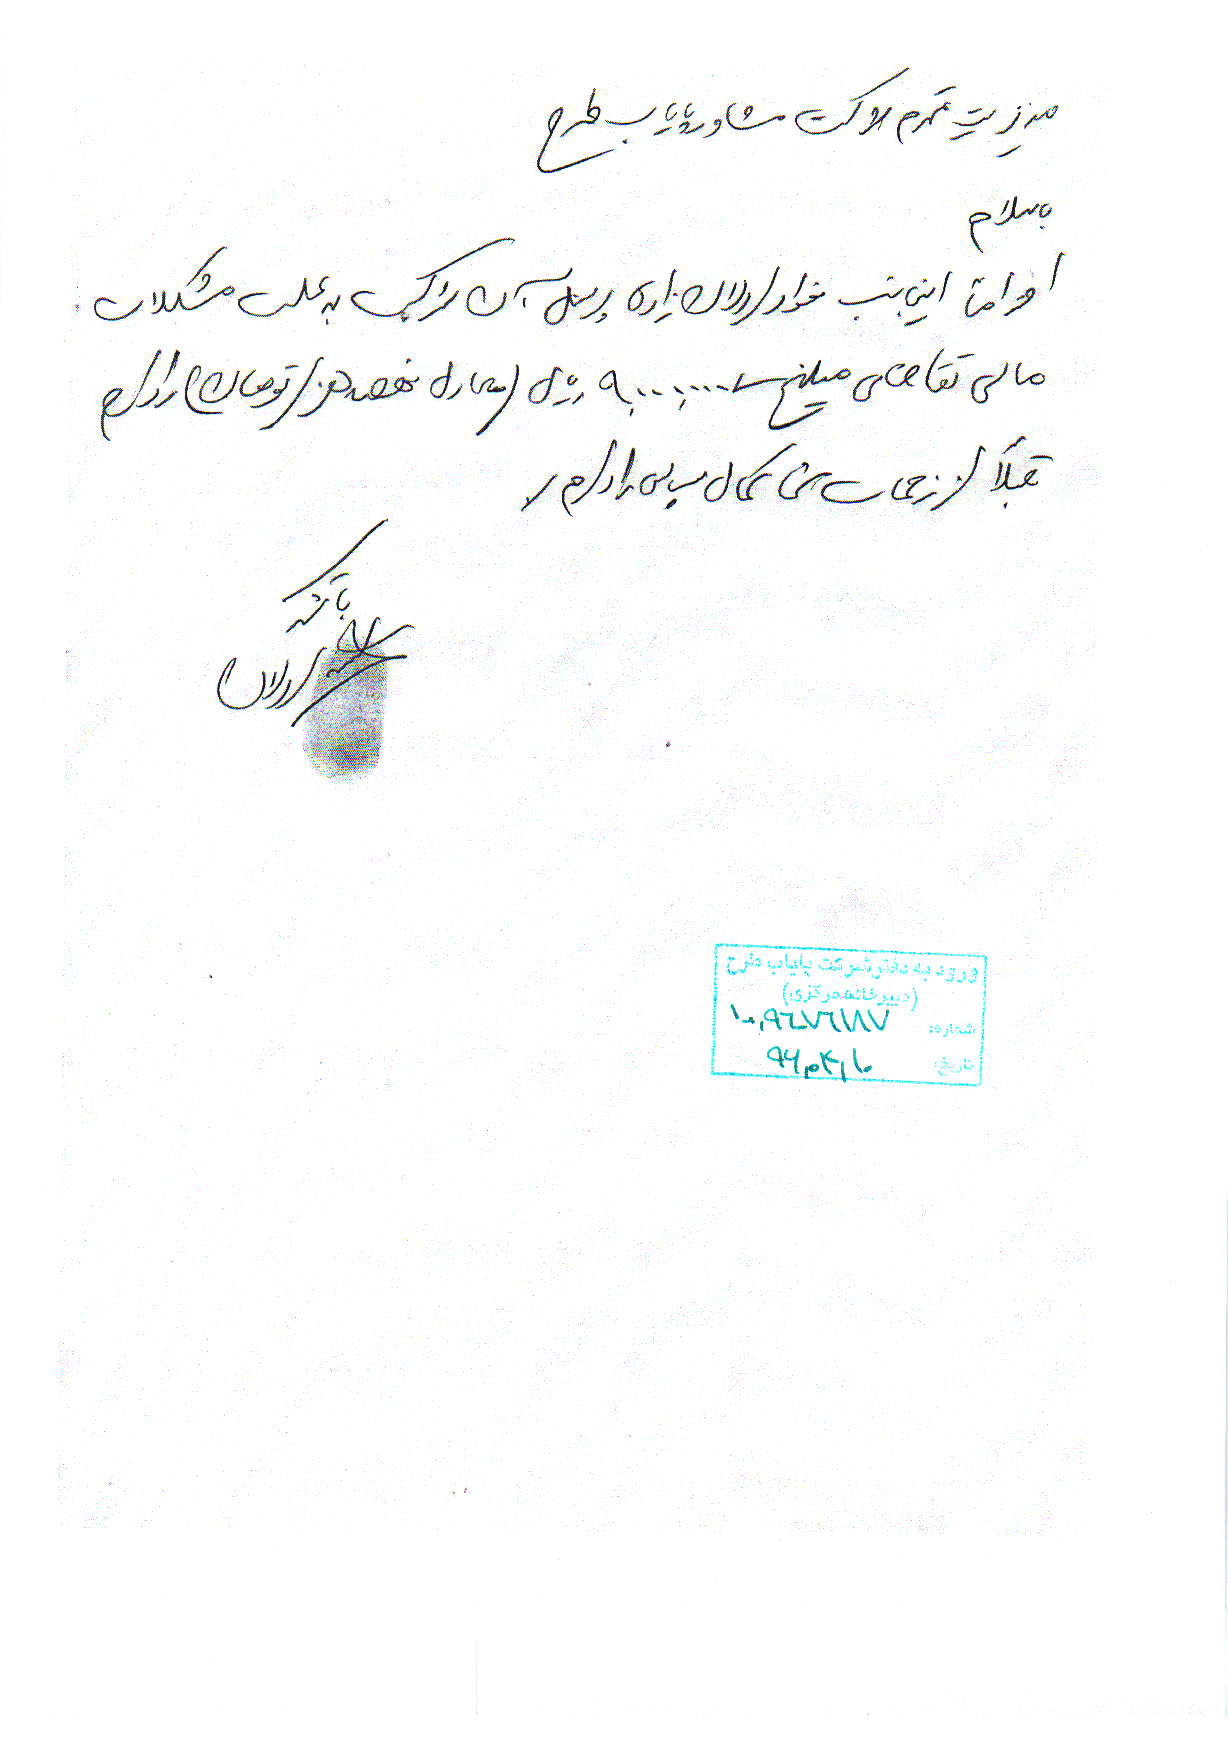 مدیریت محترم شرکت مشاور پایاب طرح
با سلام
احتراما اینجانب اردلان زاده پرسنل آن شرکت به علت مشکلات
مالی تقاضای مبلغ ۹۰۰۰۰۰۰ ریال (معادل نهصد هزار تومان) را دارم
قبلاً از زحمات شما کمال سپاس را دارم
با تشکر
اردلان
ورود به دفتر شرکت پایاب طرح
(دبیرخانه مرکزی)
شماره:
تاریخ: ۹۶٫۴٫۱۰